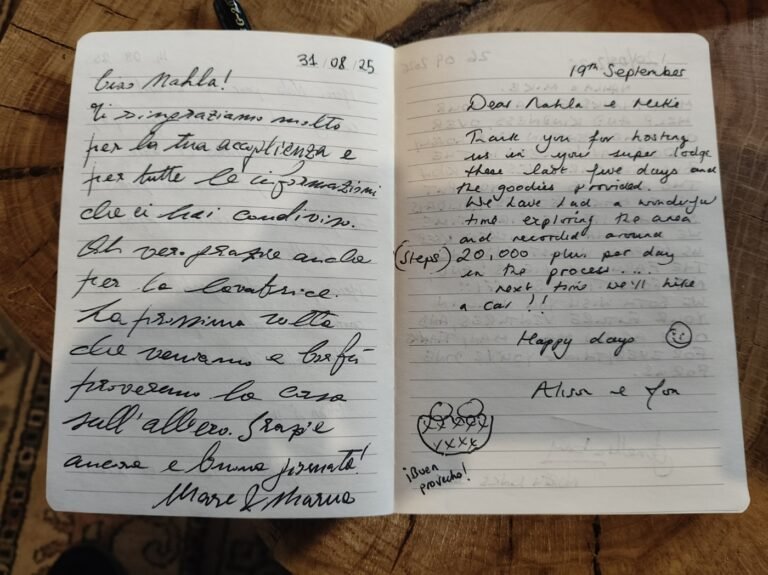 31/08/25
Ciao Mahla!
Ti ringraziamo molto
per la tua accoglienza e
per tutte le informazioni
che ci hai condiviso.
Ah vero grazie anche
per la lavatrice.
La prossima volta
che veniamo a Corfù
proveremo la casa
sull'albero. Grazie
ancora e buona giornata!
Marc & Marua
19th September
Dear Mahla e Mike
Thank you for hosting
us in your super lodge
these last five days and
the goodies provided.
We have had a wonderful
time exploring the area
and recorded around
(Steps) 20,000 plus per day
in the process....
next time we'll hire
a car!!
Happy days
Alison e Jon
¡Buen
provecho!